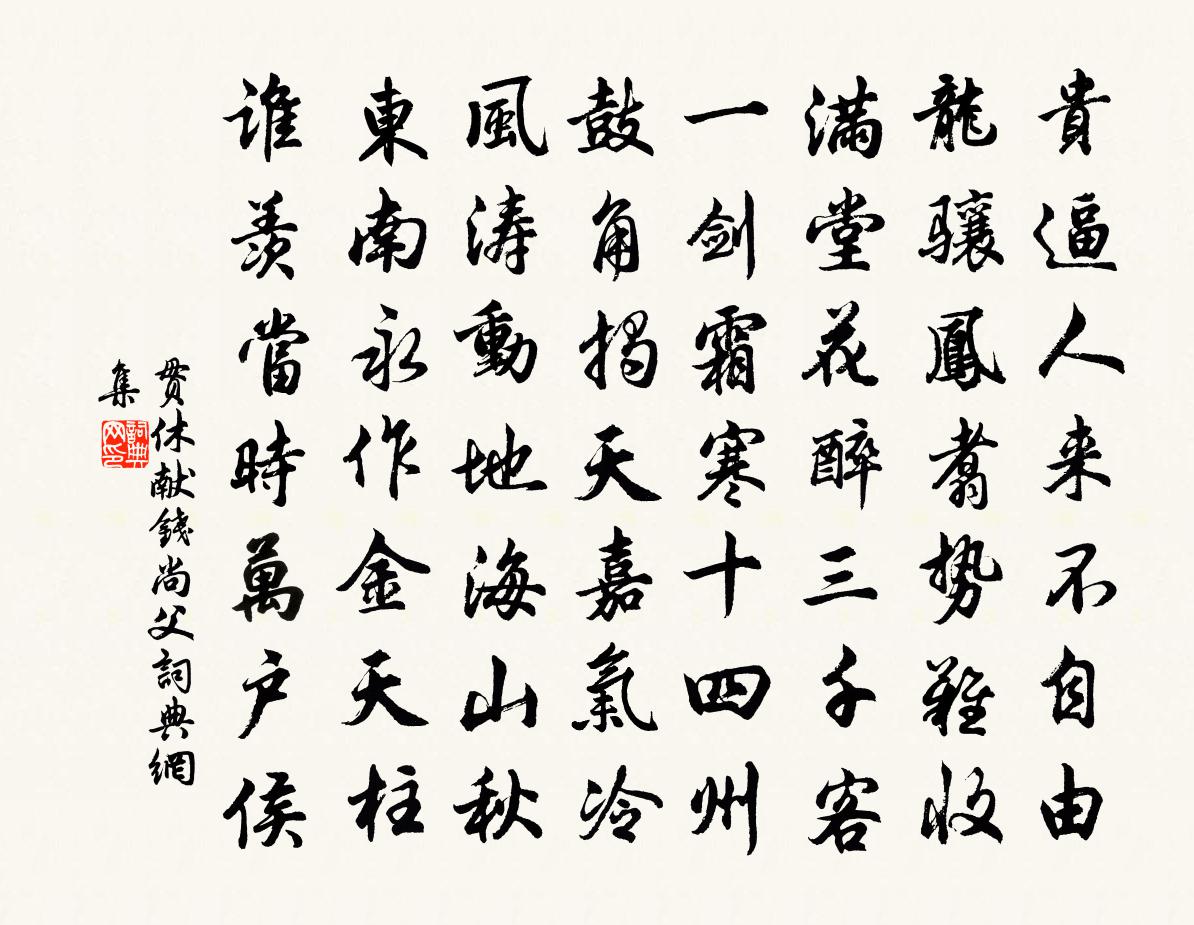 貴逼人来不自由
龍驤鳳翥勢難收
满堂花醉三千客
一剑霜寒十四州
鼓角揭天嘉氣冷
風涛動地海山秋
東南永作金天柱
谁羨當時萬户侯
贯休献錢尚父詞典網
集
詞典
网印